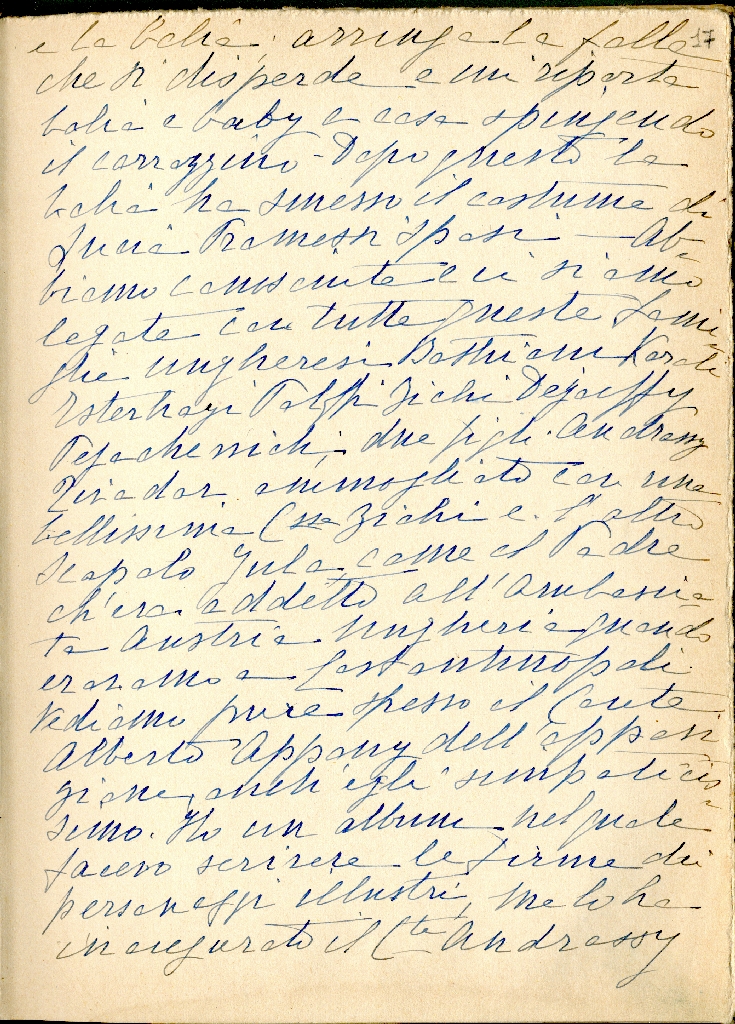 17
e la balia; arringa la folla
che si disperde e mi riporta
balia e baby a casa spingendo
il carrozzino - Dopo questo la
balia ha smesso il costume di
Lucia Promessi Sposi — Ab-
biamo conosciute e ci siamo
legate con tutte queste fami-
glie ungheresi Batthiani Karoli
Esterhazi Palffi Zichi Dejaeffy
Pejachevich, due figli Andrassy
Tivadar ammogliato con una
bellissima Cssa Zichi e l'altro
scapolo Jula come il Padre
ch'era addetto all'Ambascia-
ta Austria Ungheria quando
eravamo a Costantinopoli.
Vediamo pure spesso il Conte
Alberto Appony dell'opposi
zione, anch'egli simpaticis-
simo. Ho un album nel quale
facevo scrivere le firme di
personaggi illustri, me lo ha
inaugurato il Cte Andrassy